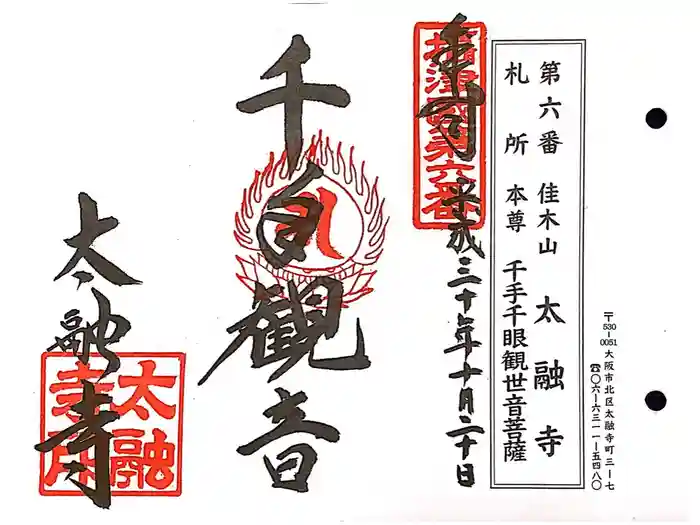 〒530-0051 大阪市北区太融寺町三-七
☎〇六-六三一一-五四八〇
第六番 佳木山 太融寺
札所本尊 千手千眼観世音菩薩
奉拝
摂津國第六番
平成三十年十月二十日
千手観音
太融寺
太融
寺印